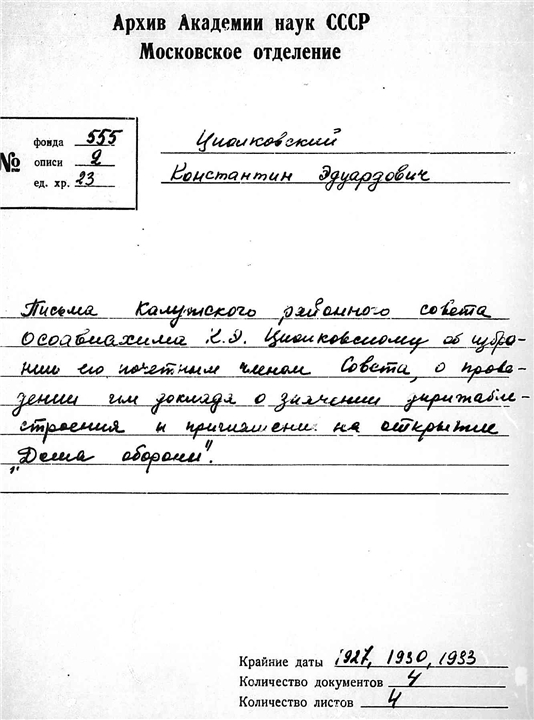 Архив Академии наук СССР
Московское отделение
№
фонда 555
описи 2
ед. хр. 23
Циолковский
Константин Эдуардович
Письма Калужского районного совета
Осоавиахима К.Э. Циолковскому об избра-
нии его почетным членом Совета, о прове-
дении им доклада о значении дирижабле-
строения и приглашени на открытие
"Дома обороны".
Крайние даты 1927, 1930, 1933
Количество документов 4
Количество листов 4